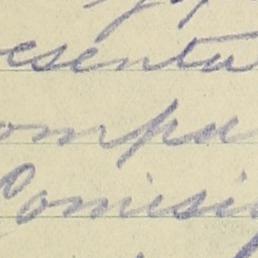 esenta
ompa
Comisi